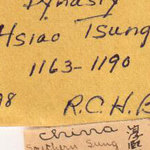 Dynasty
Hsiao Tsung
1163-1190
98 R.C.H.B
China 淳熙
Southern Sung